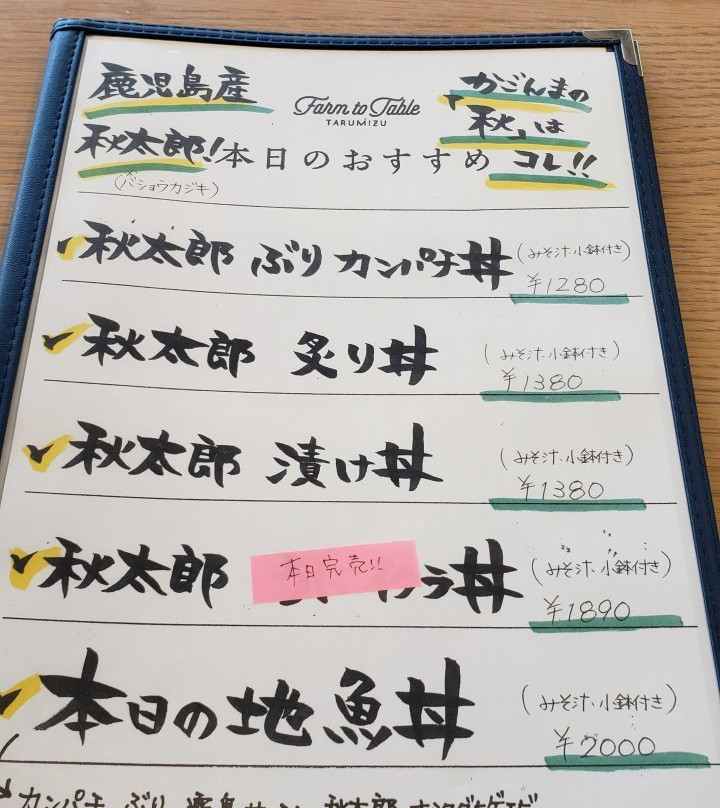 鹿児島産
秋太郎!
(バショウカジキ)
Farm to Table
TARUMIZU
かごんまの
「秋」は
コレ!!
本日のおすすめ
秋太郎 ぶりカンパチ丼 (みそ汁・小鉢付き)
¥1280
秋太郎 炙り丼 (みそ汁・小鉢付き)
¥1380
秋太郎 漬け丼 (みそ汁・小鉢付き)
¥1380
秋太郎 本日完売!! ラ丼 (みそ汁・小鉢付き)
¥1890
本日の地魚丼 (みそ汁・小鉢付き)
¥2000
カンパチ ぶり 秋太郎